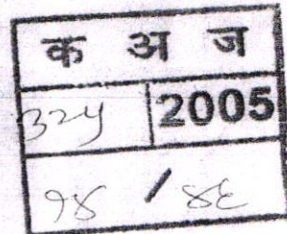 क अ ज
३२५ 2005
१४ / ४६